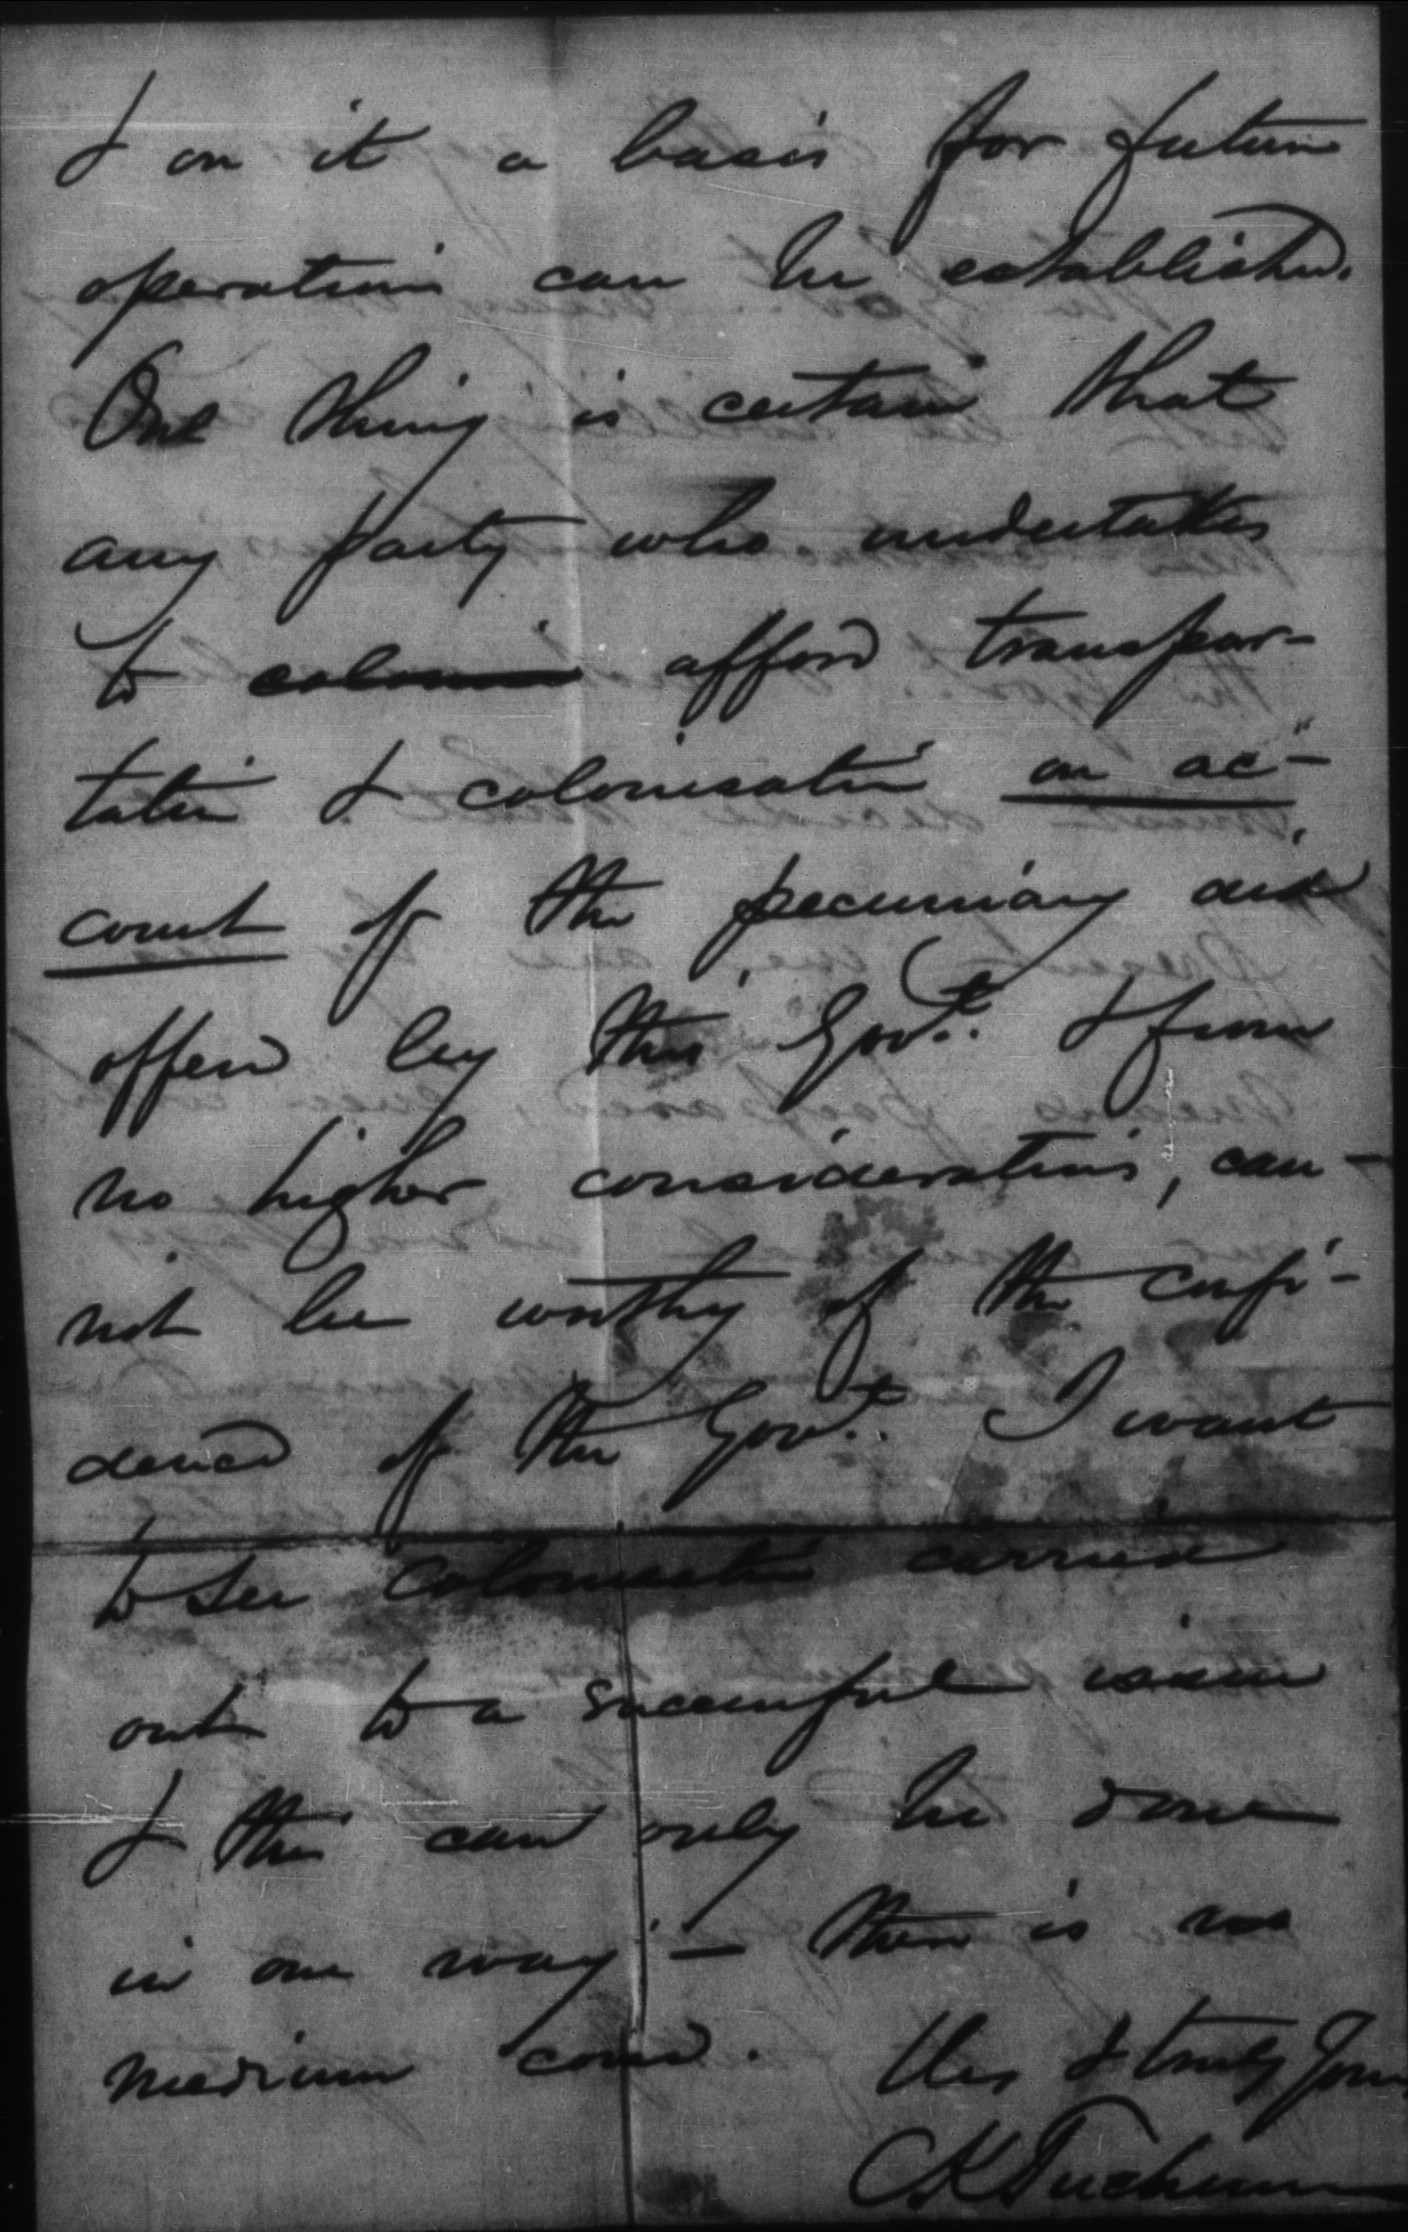 & on it a basis for future
operations can be established.
One thing is certain that
any party who undertakes
to afford transpor-
tation & colonisation on ac-
count of the pecuniary aid
offered by this Govt. & from
no higher considerations, can-
not be worthy of the confi-
dence of the Govt. I want
to see colonisation carried
out to a successful issue
& this can only be done
in one way – there is no
medium course. Very & truly Yours
CK Tuckerman